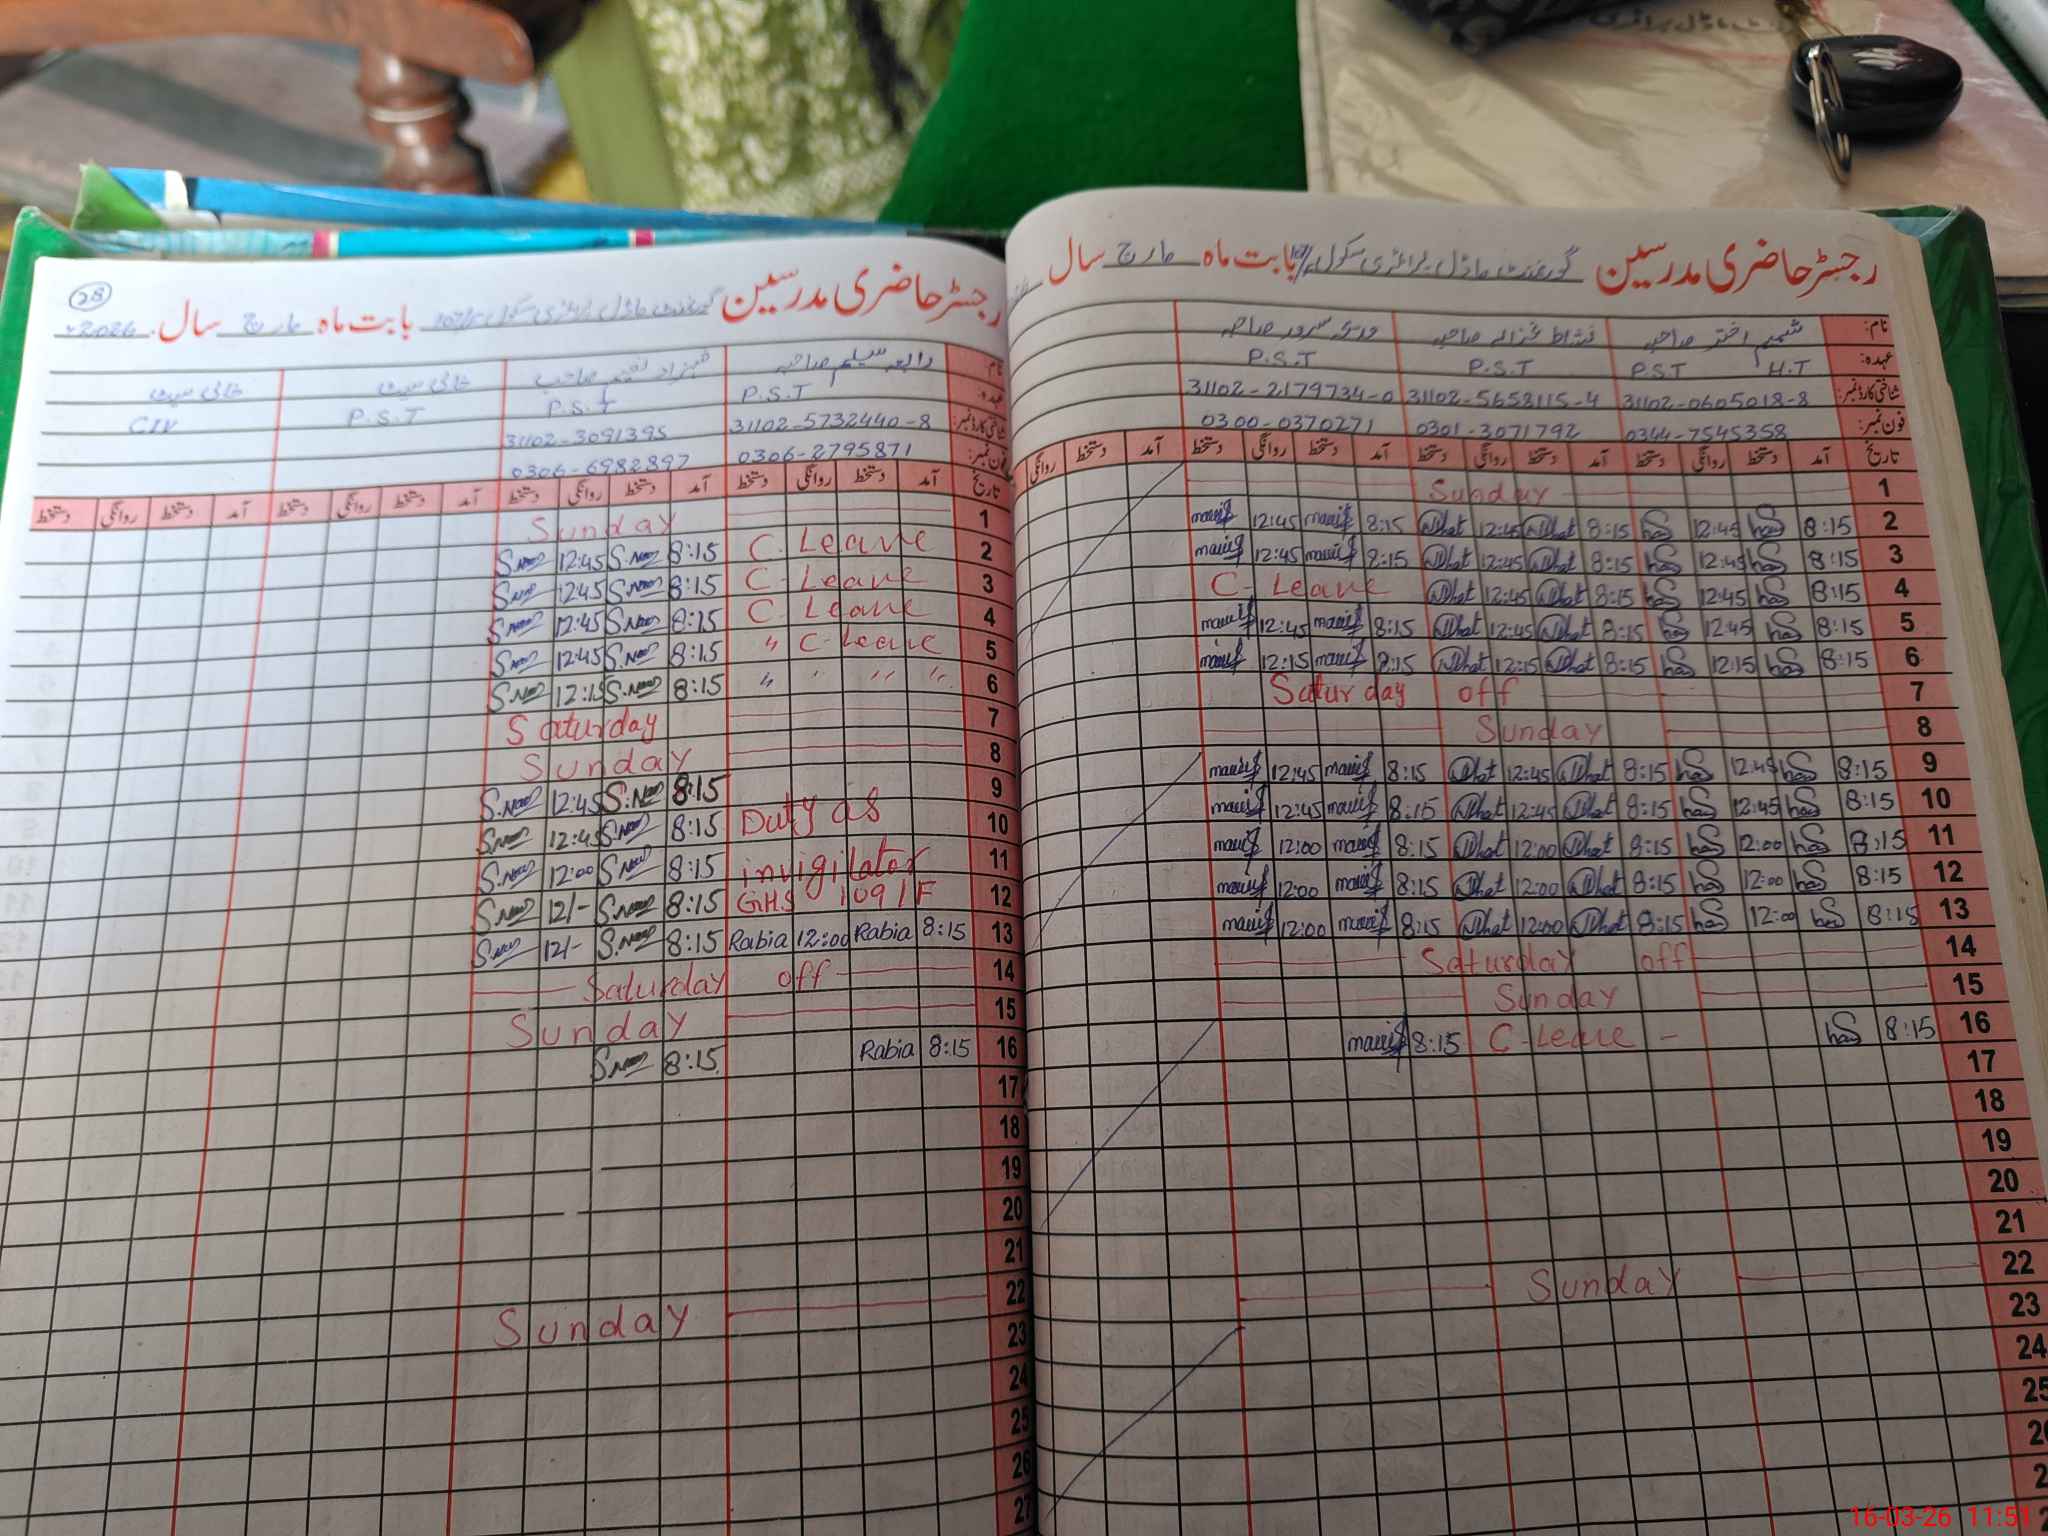 رجسٹر حاضری مدرسین گورنمنٹ ماڈل پرائمری سکول بابت ماہ مارچ سال
نام: شمیم اختر صاحبہ نشاط غزالہ صاحبہ سرور صاحبہ
عہدہ: H.T P.S.T P.S.T P.S.T
شناختی کارڈ نمبر: 31102-0605018-8 31102-5653115-4 31102-2179734-0
فون نمبر: 0344-7545358 0301-3071792 0300-0370271
تاریخ آمد دستخط روانگی دستخط آمد دستخط روانگی دستخط آمد دستخط روانگی دستخط آمد دستخط روانگی
1 Sunday
2 8:15 12:45 8:15 12:45 8:15 12:45
3 8:15 12:45 8:15 12:45 8:15 12:45
4 8:15 12:45 8:15 12:45 C-Leave
5 8:15 12:45 8:15 12:45 8:15 12:45
6 8:15 12:15 8:15 12:15 8:15 12:15
7 Saturday off
8 Sunday
9 8:15 12:45 8:15 12:45 8:15 12:45
10 8:15 12:45 8:15 12:45 8:15 12:45
11 8:15 12:00 8:15 12:00 8:15 12:00
12 8:15 12:00 8:15 12:00 8:15 12:00
13 8:15 12:00 8:15 12:00 8:15 12:00
14 Saturday off
15 Sunday
16 8:15 C-Leave - 8:15
17
18
19
20
21
22 Sunday
23
24
25
28
رجسٹر حاضری مدرسین گورنمنٹ ماڈل پرائمری سکول بابت ماہ مارچ سال 2026
نام رابعہ سلیم صاحبہ شہزاد نعیم صاحب خالی سیٹ خالی سیٹ
عہدہ: P.S.T P.S.T P.S.T CIV
شناختی کارڈ نمبر: 31102-5732440-8 31102-3091395
فون نمبر: 0306-2795871 0306-6982897
تاریخ آمد دستخط روانگی دستخط آمد دستخط روانگی دستخط آمد دستخط روانگی دستخط آمد دستخط روانگی دستخط
1 Sunday
2 C. Leave 8:15 12:45
3 C-Leave 8:15 12:45
4 C-Leave 8:15 12:45
5 " C-Leave 8:15 12:45
6 " " " " 8:15 12:15
7 Saturday
8 Sunday
9 8:15 12:45
10 Duty as 8:15 12:45
11 invigilator 8:15 12:00
12 GHS 109/F 8:15 12/-
13 8:15 Rabia 12:00 Rabia 8:15 12/-
14 Saturday off
15 Sunday
16 8:15 Rabia 8:15
17
18
19
20
21
22 Sunday
23
24
25
26
27
16-03-26 11:51